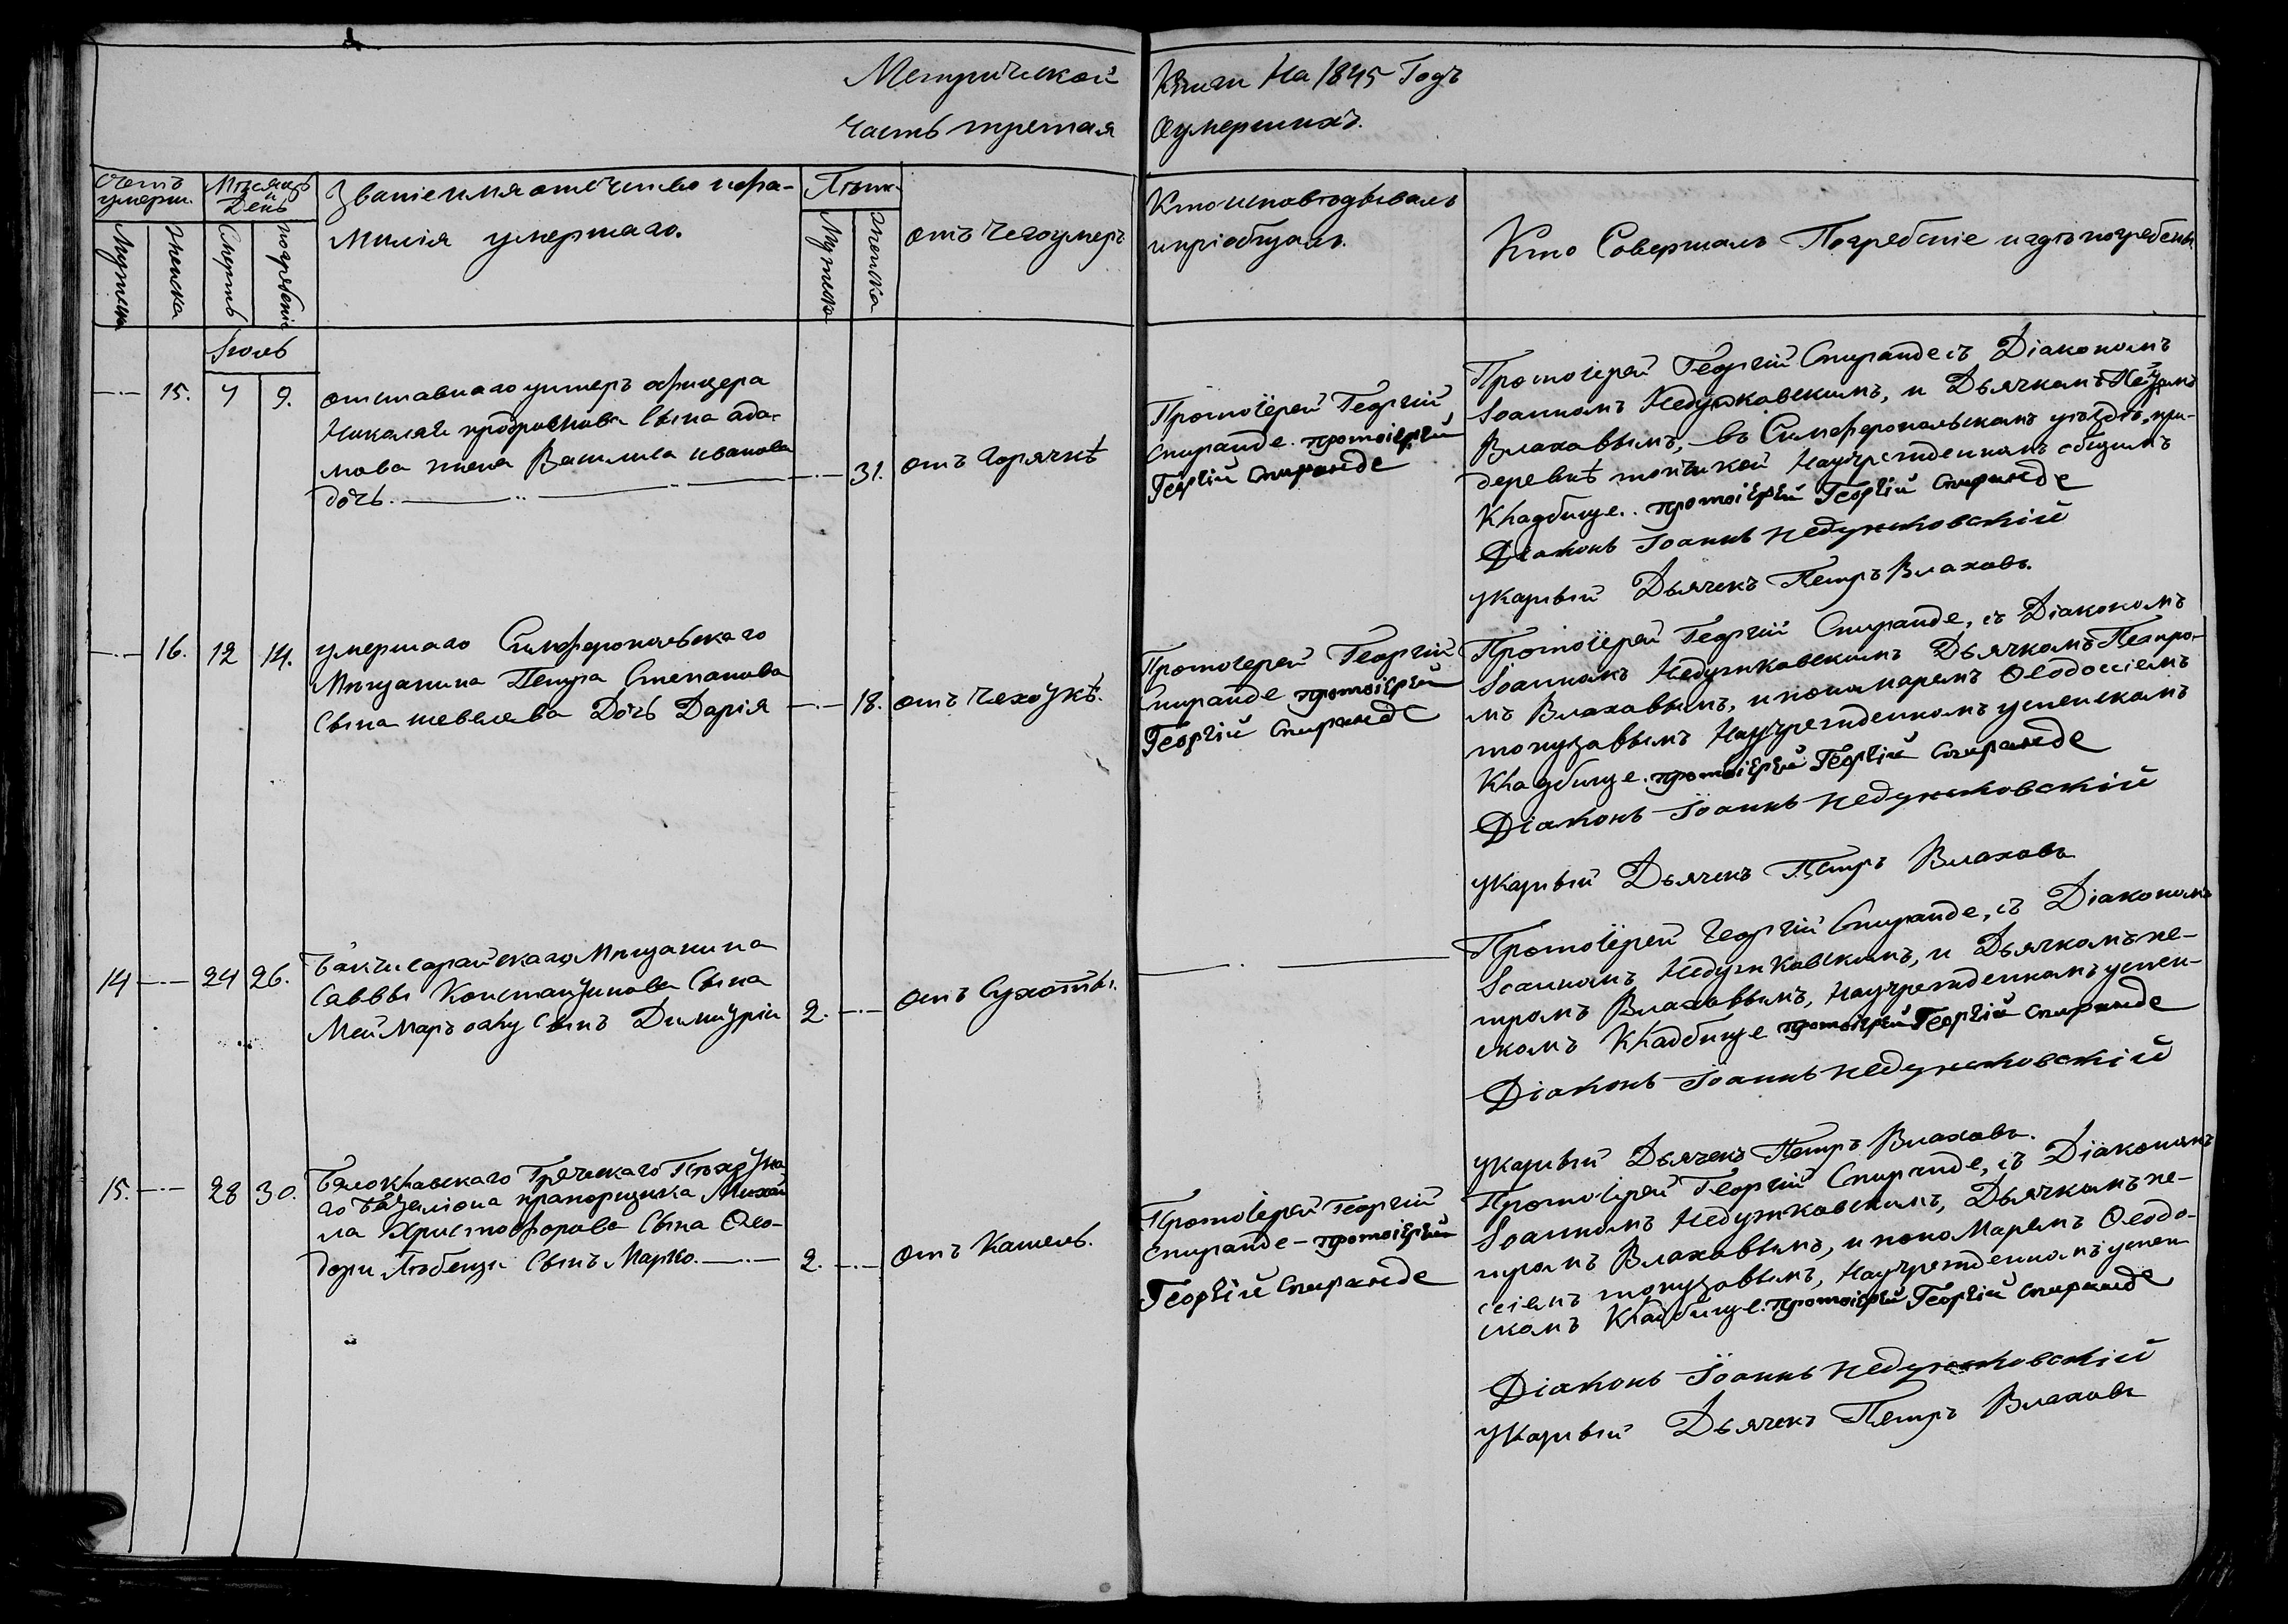 Метрической Книги На 1845 Годъ
Часть третая Оумершихъ.
Счетъ умерш.
Мѣсяцъ и День
Званіе имя отечество и фа-
милія умершаго.
Лѣта
отъ чего умеръ
Кто исповѣдывалъ
и пріобщалъ.
Кто Совершалъ Погребеніе и гдѣ погребены
Мужеска
Женска
Смерть
погребеніе
Мужеска
Женска
Іюль
15. 7 9.
отставнаго унтеръ офицера
Николая Сына ада-
мова жена Василиса иванова
дочь.
31. отъ горячкѣ
Протоіерей Георгій
Спиранде. протоіерей
Георгій Спиранде
Протоіерей Георгій Спиранде съ Діакономъ
Іоанномъ Недужковскимъ, и Дьячкомъ Петромъ
Влаховымъ, въ Симферопольскомъ уѣздѣ, при-
деревнѣ Научрежденномъ общимъ
Кладбище. протоіерей Георгій Спиранде
Діаконъ Іоаннъ Недужковскій
указный Дьячекъ Петръ Влаховъ.
16. 12 14.
умершаго Симферопольскаго
Мѣщанина Петра Степанова
Сына шевелева Дочь Дарія
18. отъ чехоткѣ.
Протоіерей Георгій
Спиранде протоіерей
Георгій Спиранде
Протоіерей Георгій Спиранде, съ Діакономъ
Іоанномъ Недужковскимъ Дьячкомъ Петро-
мъ Влаховымъ, и пономаремъ Ѳеодосіемъ
топузовымъ Научрежденномъ успенскомъ
Кладбище. протоіерей Георгій Спиранде
Діаконъ Іоаннъ Недужковскій
указный Дьячекъ Петръ Влаховъ
14 24 26.
Бахчисарайскаго Мѣщанина
Саввы Константинова Сына
Сынъ Димитрій
2. отъ Сухоты.
Протоіерей Георгій Спиранде, съ Діакономъ
Іоанномъ Недужковскимъ, и Дьячкомъ пе-
тромъ Влаховымъ, Научрежденномъ успен-
скомъ Кладбище протоіерей Георгій Спиранде
Діаконъ Іоаннъ Недужковскій
указный Дьячекъ Петръ Влаховъ.
15. 28 30.
Балоклавскаго Греческаго Пѣхотна
го Баталіона прапорщика Михаи
ла Христофорова Сына Ѳео-
дори Сынъ Марко.
2. отъ Кашель.
Протоіерей Георгій
Спиранде - протоіерей
Георгій Спиранде
Протоіерей Георгій Спиранде, съ Діакономъ
Іоанномъ Недужковскимъ, Дьячкомъ пе-
тромъ Влаховымъ, и поно Маремъ Ѳеодо-
сіемъ топузовымъ, Научрежденномъ успен
скомъ Кладбище. протоіерей Георгій Спиранде
Діаконъ Іоаннъ Недужковскій
указный Дьячекъ Петръ Влаховъ